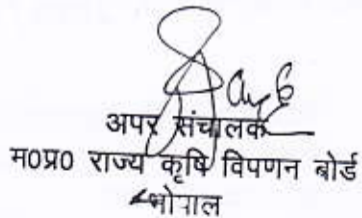 अपर संचालक
म0प्र0 राज्य कृषि विपणन बोर्ड
भोपाल